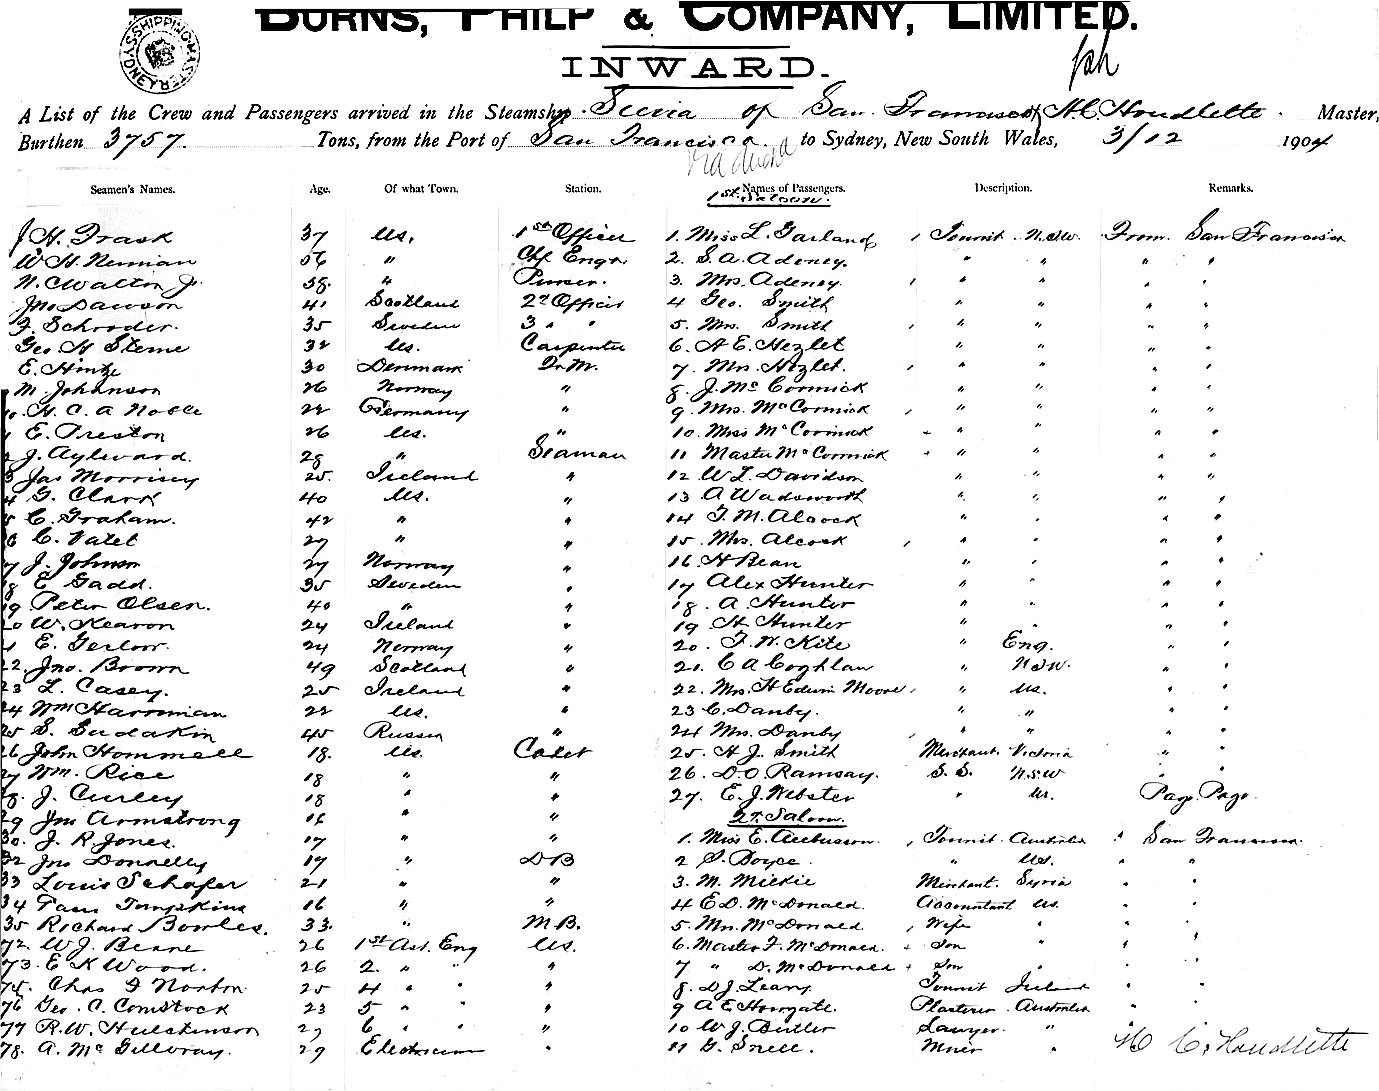 BURNS, PHILP & COMPANY, LIMITED.
SHIPPING MASTER SYDNEY
INWARD.
A List of the Crew and Passengers arrived in the Steamship Sierra of San Francisco H. C. Houdlette Master,
Burthen 3757 Tons, from the Port of San Francisco to Sydney, New South Wales, 3/12 1904
via
Seamen's Names. Age. Of what Town. Station. Names of Passengers. Description. Remarks.
1st Saloon.
J H. Trask 37 US. 1st Officer 1. Miss L. Garland Tourist N.S.W. From San Francisco
W H. Neuman 56 " Chf Engr 2. S. A. Adeney. " " " "
N. C Walton Jr. 38. " Purser. 3. Mrs. Adeney. " " " "
Jno Dawson 41 Scotland 2d Officer 4 Geo. Smith " " " "
F. Schroder. 35 Sweden 3 " " 5. Mrs. Smith " " " "
Geo H Sterne 32 US. Carpenter 6. A E. Hezlet " " " "
E. Hintze 30 Denmark Q.M. 7. Mrs. Hezlet. " " " "
M. Johanson 26 Norway " 8. J. McCormick " " " "
10. H. C. A Noble 22 Germany " 9. Mrs. McCormick " " " "
E. Preston 26 US. " 10. Miss McCormick " " " "
J. Aylward. 28 " Seaman 11 Master McCormick " " " "
Jas Morrisey 25. Ireland " 12 W. L. Davidson " " " "
4 G. Clark 40 US. " 13 A Wadsworth " " " "
5 C. Graham. 42 " " 14 T. M. Alcock " " " "
6 C. Valet 27 " " 15. Mrs. Alcock " " " "
7 J. Johnson 27 Norway " 16. H Bean " " " "
18 E Gadd. 35 Sweden " 17 Alex Hunter " " " "
19 Peter Olsen. 40 " " 18. A. Hunter " " " "
20 W. Kearon 24 Ireland " 19 H. Hunter " " " "
E. Gerlow. 24 Norway " 20. F. W. Kite " Eng. " "
22. Jno. Brown 49 Scotland " 21. C A Coghlan " N.S.W. " "
23 L. Casey. 25 Ireland " 22. Mrs. H Edwin Moore " US. " "
24 Wm Harriman 22 US. " 23 C. Danby. " " " "
25 S. Sudakin 45 Russia " 24 Mrs. Danby " " " "
26 John Hommell 18. US. Cadet 25. H J. Smith Merchant Victoria " "
27 Wm. Rice 18 " " 26. D. O. Ramsay. S. S. N.S.W " "
28. J. Curley 18 " " 27. E. J. Webster " US. Pago Pago.
29 Jno Armstrong 16 " " 2d. Saloon.
30. J. R. Jones. 17 " " 1. Miss E. Tourist Australia " San Francisco.
32 Jno Donnelly 19 " D B 2 S. Boyce. " US. " "
33 Louis Schafer 21 " " 3. M. Milkie Merchant. Syria " "
34 Tompkins 16 " " 4 E D. McDonald. Accountant US. " "
35 Richard Bowles. 33. " M.B. 5. Mrs. McDonald. Wife " " "
72. W. J. Beane 26 1st Ast. Eng US. 6. Master F. McDonald. Son " " "
73. E K Wood. 26 2. " " " 7 " D. McDonald Son " " "
75. Chas F Norton 25 4 " " " 8. D J. Leary. Tourist Ireland " "
76 Geo. C. Comstock 23 5 " " " 9 A E. Howgate. Plasterer Australia
77 R. W. Hutchinson 27 6 " " " 10 W J. Butler Lawyer. "
78. A. McGillvray. 29 Electrician " 11 G. Snell. Miner " H C. Houdlette